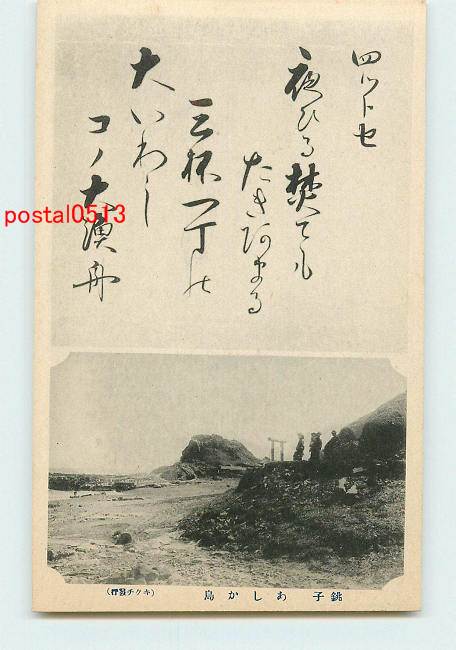 四ツトセ
夜ひる焚ても
たきあまる
三杯一丁の
大いわし
コノ大漁舟
postal0513
銚子 あしか島
(キクチ製行)